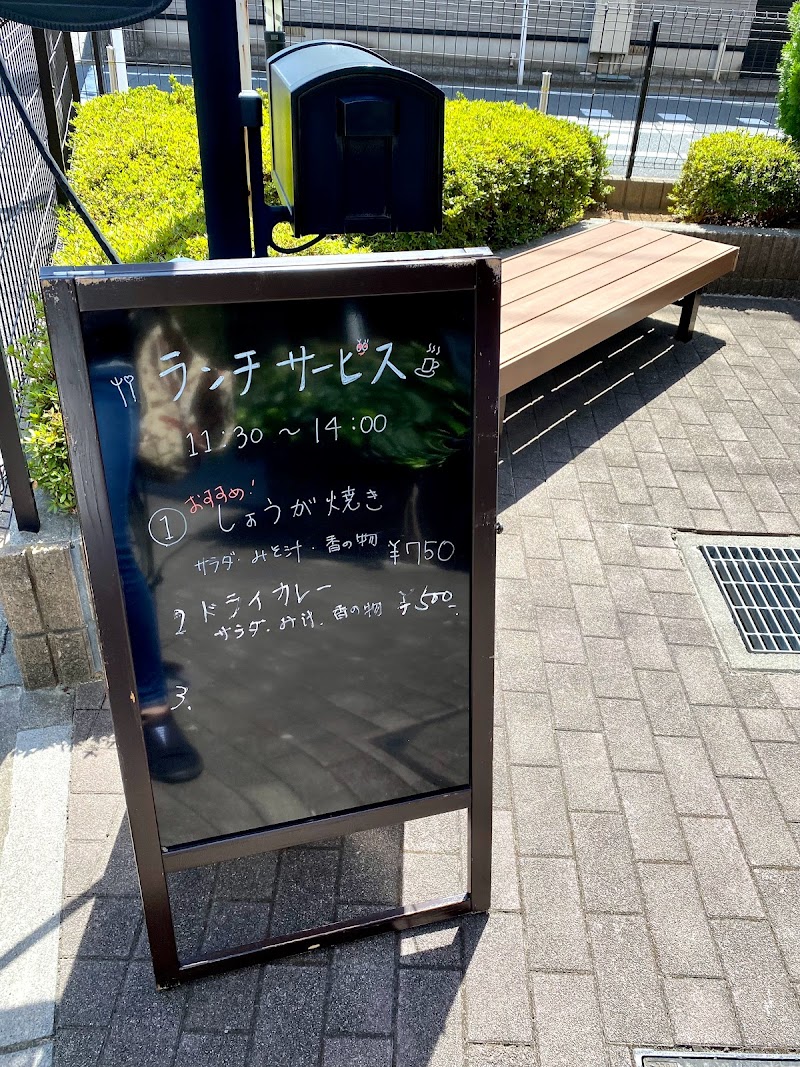 ランチサービス
11:30 ～ 14:00
おすすめ!
① しょうが焼き
サラダ・みそ汁・香の物 ¥750
2 ドライカレー
サラダ・みそ汁・香の物 ¥500-
3.